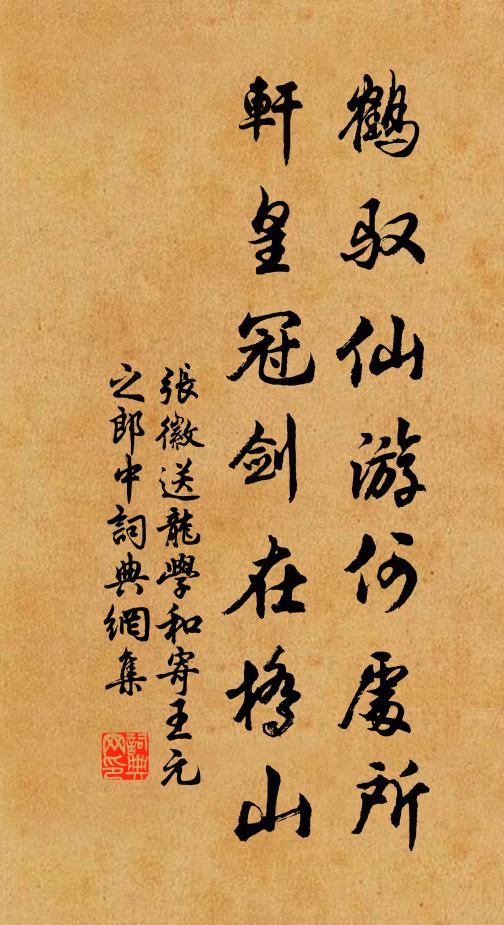 鶴驭仙游何處所
軒皇冠剑在橋山
張徽送龍學和寄王元
之郎中詞典網集
詞典
网印